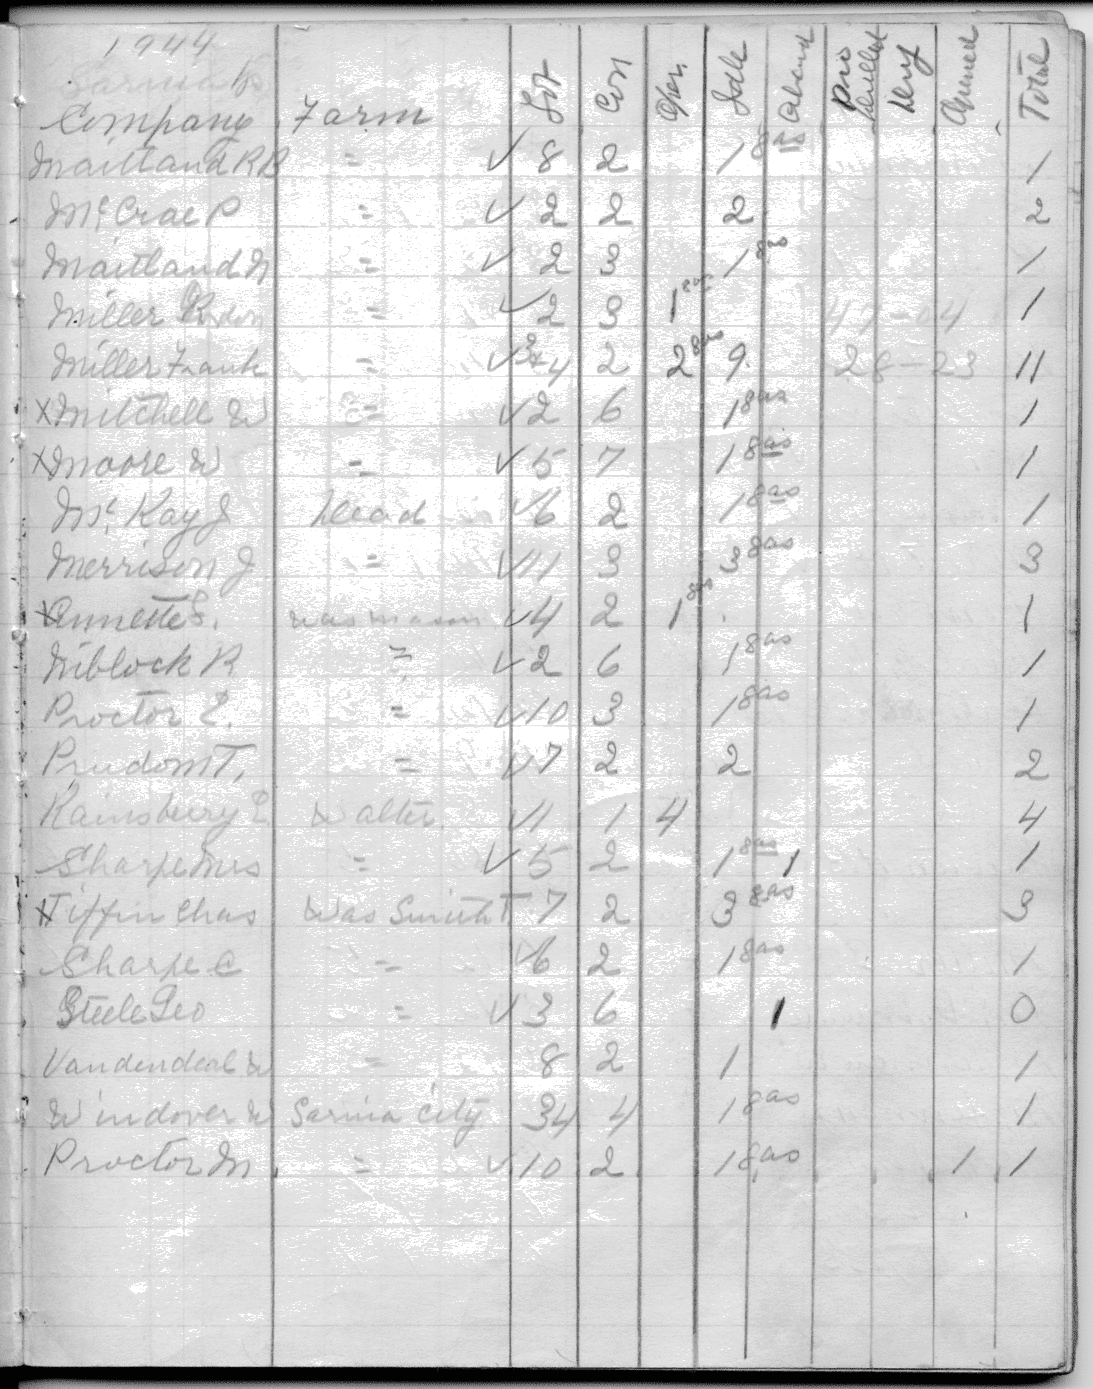 1944
Sarnia
Company Farm Lot Con Oper. Idle Aband Pro Drilled Deny Opened Total
Maitland R B " ✓ 8 2 1 gas 1
McCrae P " ✓ 2 2 2 2
Maitland M " ✓ 2 3 1 gas 1
Miller " ✓ 2 3 1 gas 47-04 1
Miller Frank " ✓ 3+4 2 2 gas 9 28-23 11
x Mitchell W " ✓ 2 6 1 gas 1
x Moore W " ✓ 5 7 1 gas 1
McKay J Dead ✓ 6 2 1 gas 1
Merrison J " ✓ 11 3 3 gas 3
x Annette was mason ✓ 4 2 1 gas 1
Niblock R " ✓ 2 6 1 gas 1
Proctor E. " ✓ 10 3 1 gas 1
Prudom T. " ✓ 7 2 2 2
Rainsberry E Walter ✓ 1 1 4 4
Sharpe Mrs " ✓ 5 2 1 gas 1 1
x Tiffin Chas Was Smith T 7 2 3 gas 3
Sharpe C " ✓ 6 2 1 gas 1
Steele Geo " ✓ 3 6 1 0
Vandendeal W " 8 2 1 1
Windover W Sarnia City 34 4 1 gas 1
Proctor M " ✓ 10 2 1 gas 1 1